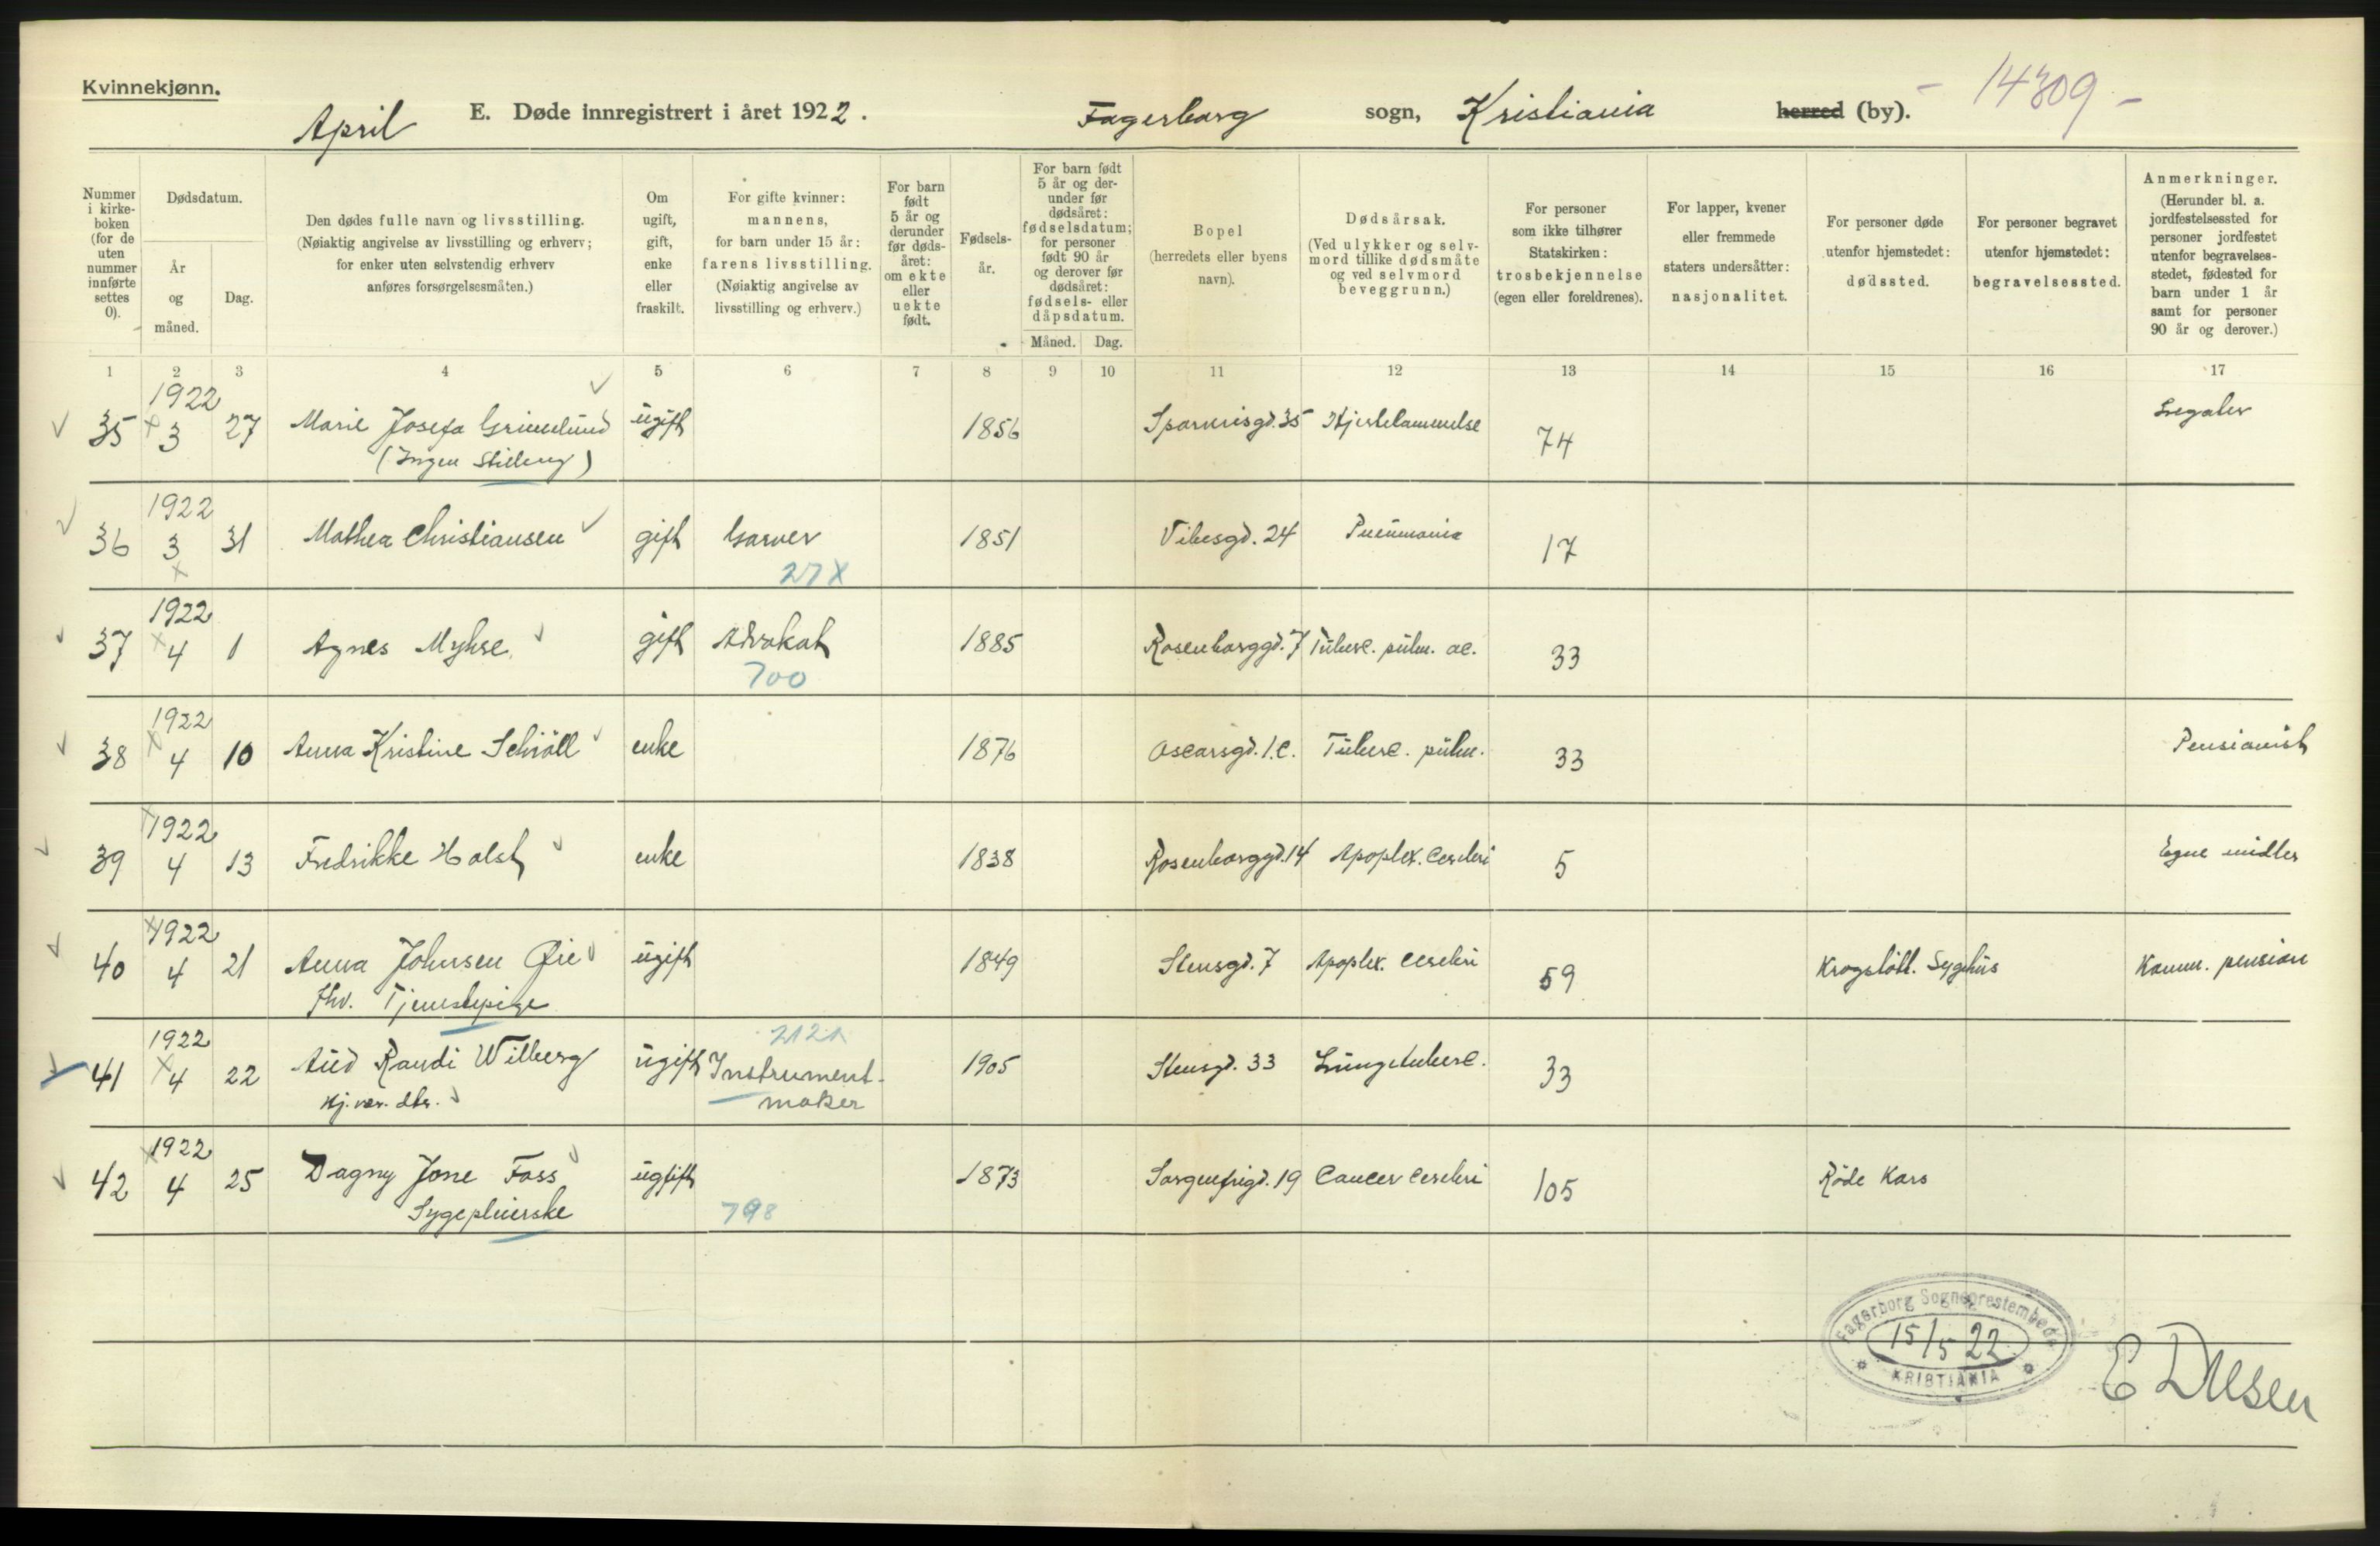 Kvinnekjønn.
April E. Døde innregistrert i året 1922. Fagerborg sogn, Kristiania herred (by). - 14309 -
Nummer i kirkeboken (for de uten nummer innførte settes 0).
Dødsdatum.
År og måned.
Dag.
Den dødes fulle navn og livsstilling.
(Nøiaktig angivelse av livsstilling og erhverv;
for enker uten selvstendig erhverv
anføres forsørgelsesmåten.)
Om ugift, gift, enke eller fraskilt.
For gifte kvinner:
mannens,
for barn under 15 år:
farens livsstilling.
(Nøiaktig angivelse av
livsstilling og erhverv.)
For barn født 5 år og derunder før dødsåret: om ekte eller uekte født.
Fødselsår.
For barn født 5 år og derunder før dødsåret: fødselsdatum; for personer født 90 år og derover før dødsåret: fødsels- eller dåpsdatum.
Måned. Dag.
Bopel
(herredets eller byens
navn).
Dødsårsak.
(Ved ulykker og selvmord tillike dødsmåte
og ved selvmord
beveggrunn.)
For personer
som ikke tilhører
Statskirken:
trosbekjennelse
(egen eller foreldrenes).
For lapper, kvener
eller fremmede
staters undersåtter:
nasjonalitet.
For personer døde
utenfor hjemstedet:
dødssted.
For personer begravet
utenfor hjemstedet:
begravelsessted.
Anmerkninger.
(Herunder bl. a.
jordfestelsessted for
personer jordfestet
utenfor begravelses-
stedet, fødested for
barn under 1 år
samt for personer
90 år og derover.)
1 2 3 4 5 6 7 8 9 10 11 12 13 14 15 16 17
1922
35 3 27 Marie Josefa Grimelund ugift 1856 35 Hjertelammelse 74 Legater
(Ingen Stilling)
1922
36 3 31 Mathea Christiansen gift Garver 1851 Vibesgd. 24 Pneumonia 17
27 X
1922
37 4 1 Agnes Myhre gift Advokat 1885 Rosenborggd. 7 Tuberc. pulm. ac. 33
700
1922
38 4 10 Anna Kristine Schiöll enke 1876 Oscarsgd. 1.c. Tuberc. pulm. 33 Pensionist
1922
39 4 13 Fredrikke Holst enke 1838 Rosenborggd. 14 Apoplex. Cerebri 5 Egne midler
1922
40 4 21 Anna Johnsen Øie ugift 1849 Stensgd. 7 Apoplex. cerebri 59 Krogstøtt. Sygehus Komm. pension
fhv. Tjenestepige
1922
2121
41 4 22 Aud Randi Wilberg ugift Instrument- 1905 Stensgd. 33 Lungetuberc. 33
Hj.vær. dtr. maker
1922
42 4 25 Dagny Jone Foss ugift 1873 Sorgenfrigd. 19 Cancer cerebri 105 Røde Kors
Sygepleierske 798
Fagerborg Sogneprestembede
15/5 22
KRISTIANIA